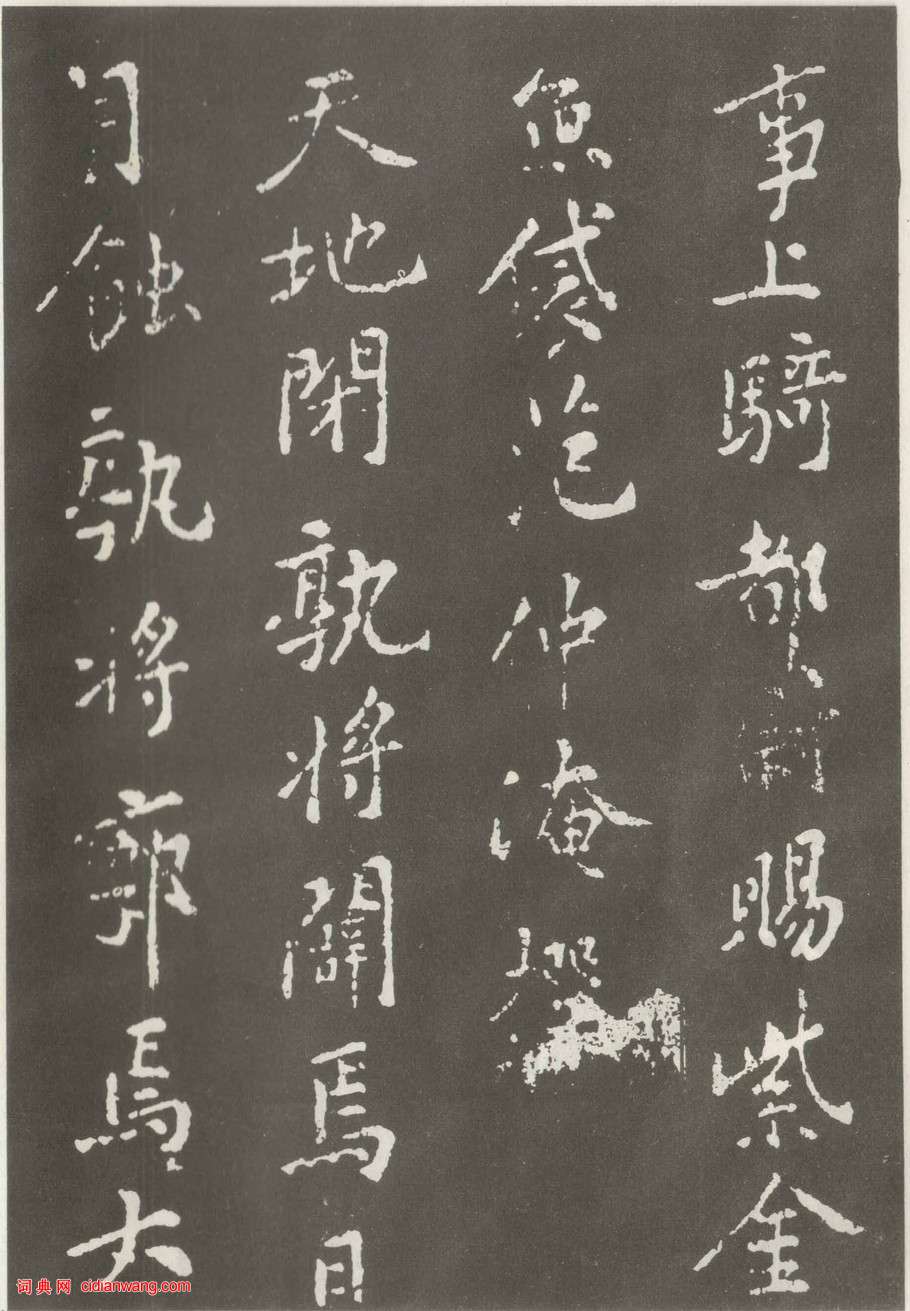 事上騎都尉賜紫金
魚袋范仲淹撰
天地閉孰將闢焉日
月蝕孰將廓焉大
词典网 cidianwang.com